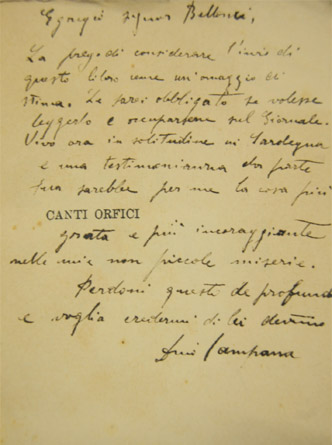 Egregio Signor Bellonci,
La prego di considerare l'invio di
questo libro come un'omaggio di
stima. Le sarei obbligato se volesse
leggerlo e occuparsene sul Giornale.
Vivo ora in solitudine in Sardegna
e una testimonianza da parte
Sua sarebbe per me la cosa più
CANTI ORFICI
grata e più incoraggiante
nelle mie non piccole miserie.
Perdoni questo de profundis
e voglia credermi di lei devmo
Dino Campana